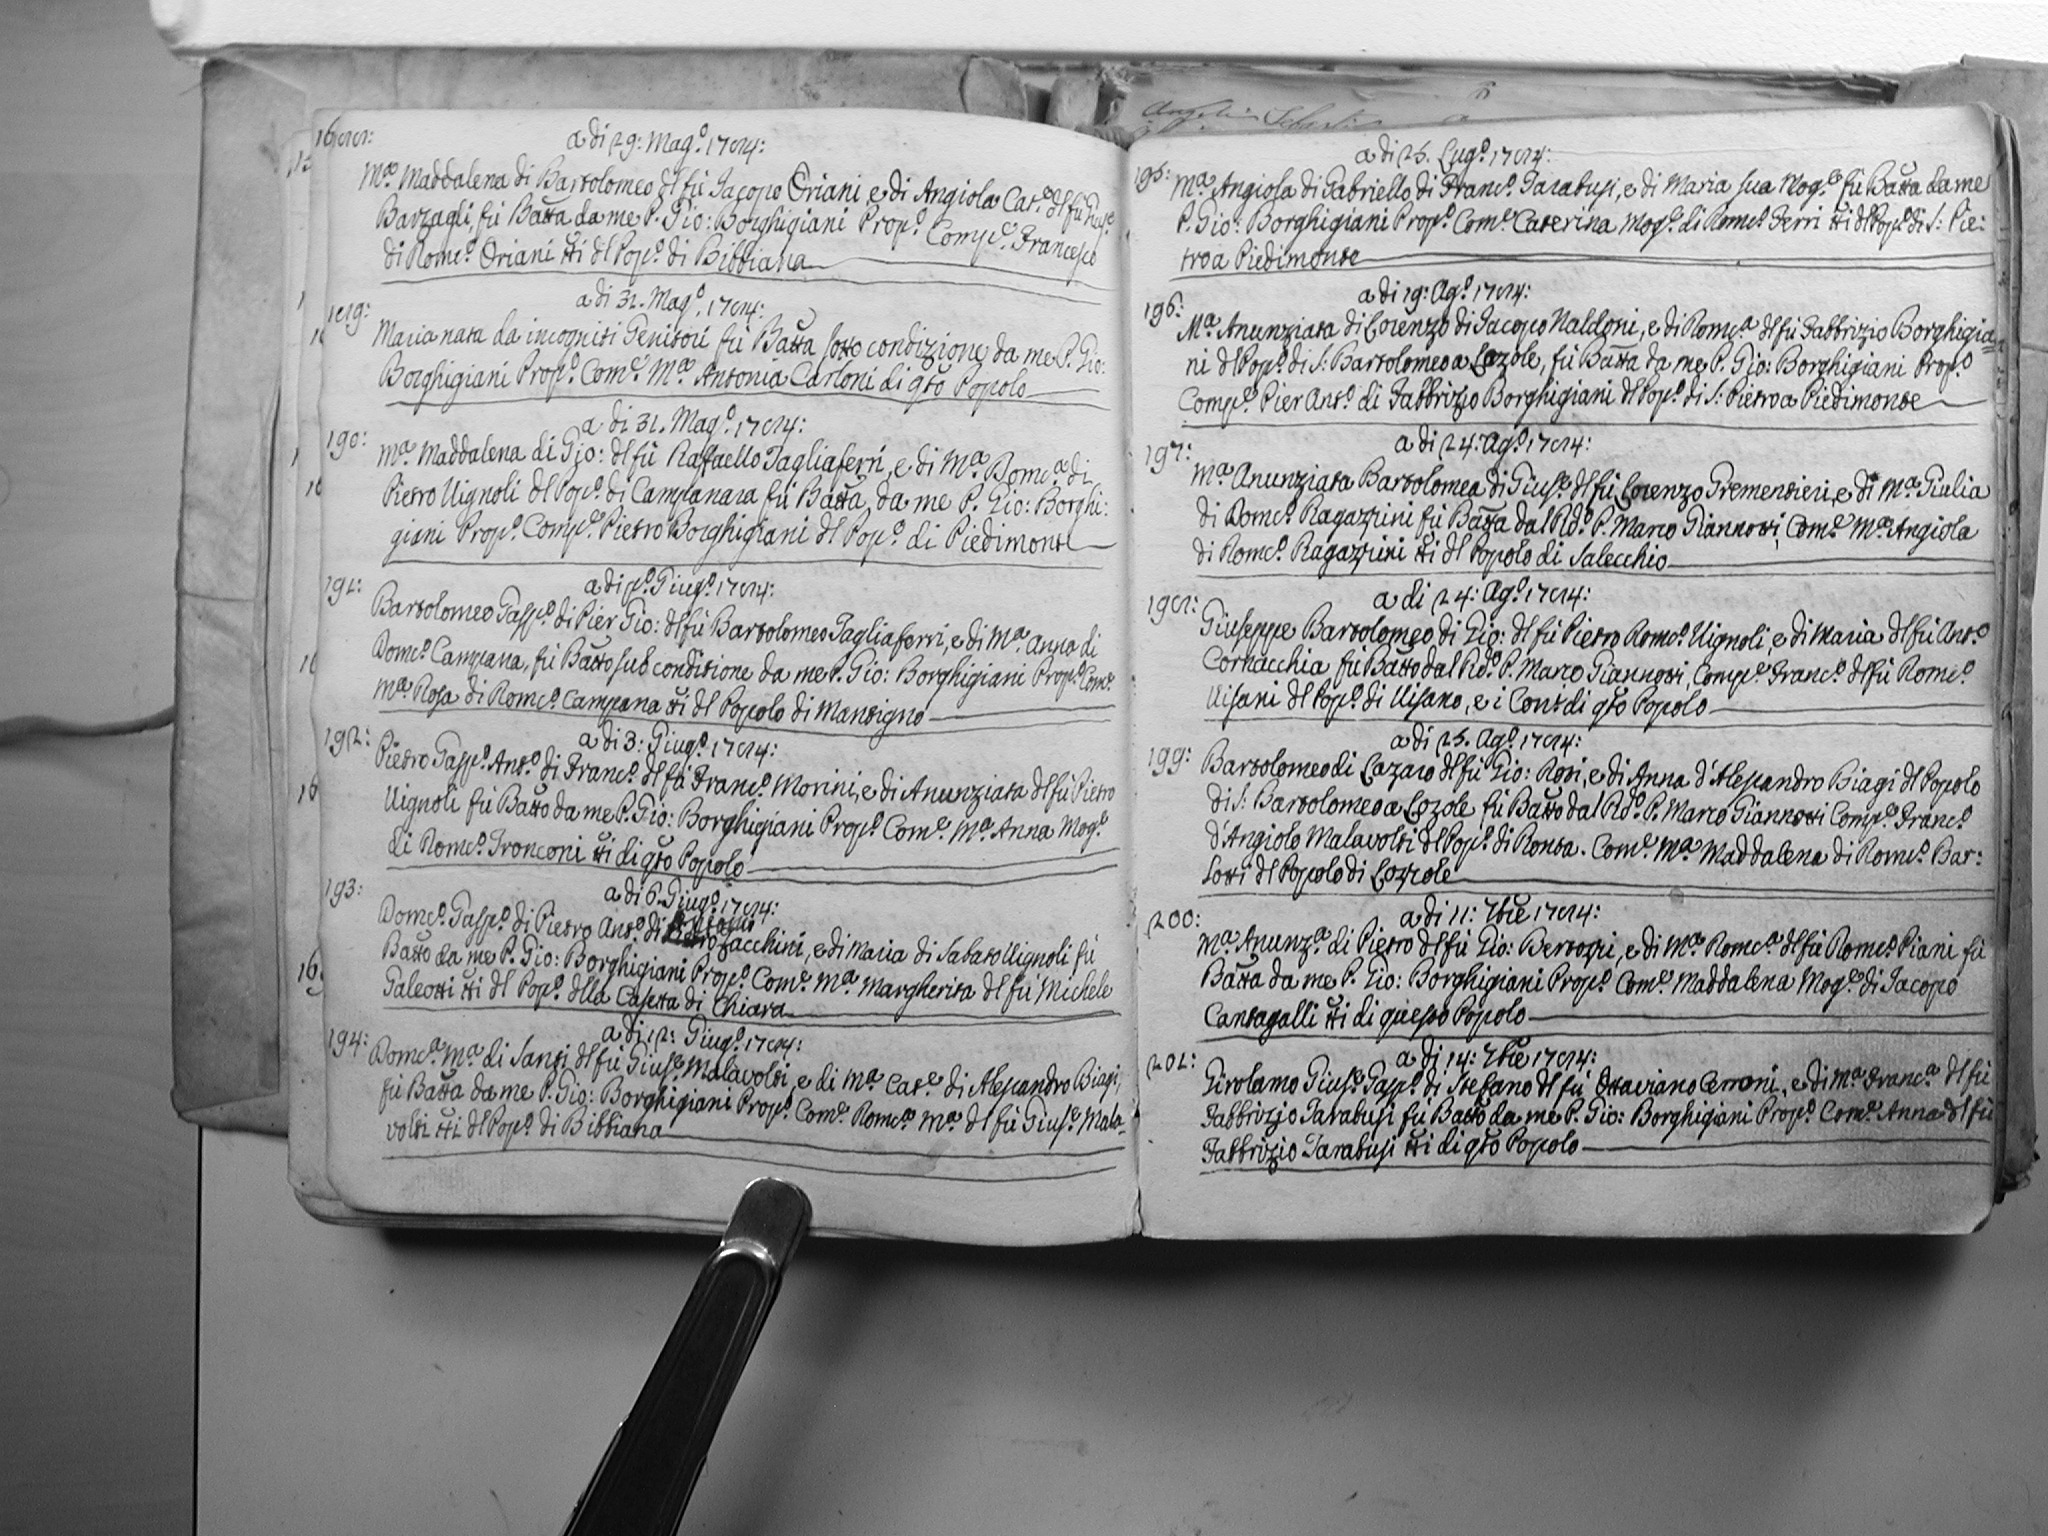 188:
a di 29: Mag.º 1784:
M.ª Maddalena di Bartolomeo del fù Jacopo Oriani, e di Angiola Cat.ª del fù Gius.e
Barzagli, fù Batta da me P. Gio: Borghigiani Prop.º Comp.e Francesco
di Dom.co Oriani tti del Pop.º di Bibbiana
189:
a di 31. Mag.º 1784:
Maria nata da incogniti Genitori fù Batta sotto condizione da me P. Gio:
Borghigiani Prop.º Com.e M.ª Antonia Carloni di qsto Popolo
190:
a di 31. Mag.º 1784:
M.ª Maddalena di Gio: del fù Raffaello Tagliaferri, e di M.ª Dom.ca di
Pietro Vignoli del Pop.º di Campanara fù Batta da me P. Gio: Borghi:
giani Prop.º Comp.e Pietro Borghigiani del Pop.º di Piedimonte
191:
a di p.º Giug.º 1784:
Bartolomeo Gasp.º di Pier Gio: del fù Bartolomeo Tagliaferri, e di M.ª Anna di
Dom.co Campana, fù Batto sub conditione da me P. Gio: Borghigiani Prop.º Com.e
M.ª Rosa di Dom.co Campana tti del Popolo di Mantigno
192:
a di 3: Giug.º 1784:
Pietro Gasp.º Ant.º di Franc.º del fù Franc.º Morini, e di Anunziata del fù Pietro
Vignoli fù Batto da me P. Gio: Borghigiani Prop.º Com.e M.ª Anna Mog.e
di Dom.co Fronconi tti di qsto Popolo
193:
a di 6. Giug.º 1784:
Dom.co Gasp.º di Pietro Ant.º di Zacchini, e di Maria di Sabato Vignoli fù
Batto da me P. Gio: Borghigiani Prop.º Com.e M.ª Margherita del fù Michele
Galeotti tti del Pop.º della Casetta di Chiara
194:
a di 12: Giug.º 1784:
Dom.ca M.ª di Santi del fù Gius.e Malavolti, e di M.ª Cat.ª di Alessandro Biagi,
fù Batta da me P. Gio: Borghigiani Prop.º Com.e Dom.ca M.ª del fù Gius.e Mala-
volti tti del Pop.º di Bibbiana
195:
a di 25. Lug.º 1784:
M.ª Angiola di Gabriello di Franc.º Tarabusi, e di Maria sua Mog.e fù Batta da me
P. Gio: Borghigiani Prop.º Com.e Caterina Mog.e di Dom.co Ferri tti del Pop.º di S: Pie:
tro a Piedimonte
196:
a di 19: Ag.º 1784:
M.ª Anunziata di Lorenzo di Jacopo Naldoni, e di Dom.ca del fù Fabbrizio Borghigia=
ni del Pop.º di S: Bartolomeo a Lozole, fù Batta da me P. Gio: Borghigiani Prop.º
Comp.e Pier Ant.º di Fabbrizio Borghigiani del Pop.º di S: Pietro a Piedimonte
197:
a di 24: Ag.º 1784:
M.ª Anunziata Bartolomea di Gius.e del fù Lorenzo Trementieri, e di M.ª Giulia
di Dom.co Ragazzini fù Batta dal Rdº P. Marco Giannotti, Com.e M.ª Angiola
di Dom.co Ragazzini tti del Popolo di Salecchio
198:
a di 24: Ag.º 1784:
Giuseppe Bartolomeo di Gio: del fù Pietro Dom.co Vignoli, e di Maria del fù Ant.º
Cornacchia fù Batto dal Rdº P. Marco Giannotti, Comp.e Franc.º del fù Dom.co
Visani del Pop.º di Visano, e i Conti di qsto Popolo
199:
a di 25. Ag.º 1784:
Bartolomeo di Lazaro del fù Gio: Rosi, e di Anna d'Alessandro Biagi del Popolo
di S: Bartolomeo a Lozole fù Batto dal Rdº P. Marco Giannotti Comp.e Franc.º
d'Angiolo Malavolti del Pop.º di Ronta. Com.e M.ª Maddalena di Dom.co Bar:
lotti del Popolo di Lozzole
200:
a di 11: 7bre 1784:
M.ª Anunz.ª di Pietro del fù Gio: Bertozzi, e di M.ª Dom.ca del fù Dom.co Piani fù
Batta da me P. Gio: Borghigiani Prop.º Com.e Maddalena Mog.e di Jacopo
Cantagalli tti di questo Popolo
201:
a di 14: 7bre 1784:
Girolamo Gius.e Gasp.º di Stefano del fù Ottaviano Cerroni, e di M.ª Franc.ª del fù
Fabbrizio Tarabusi fù Batto da me P. Gio: Borghigiani Prop.º Com.e Anna del fù
Fabbrizio Tarabusi tti di qsto Popolo